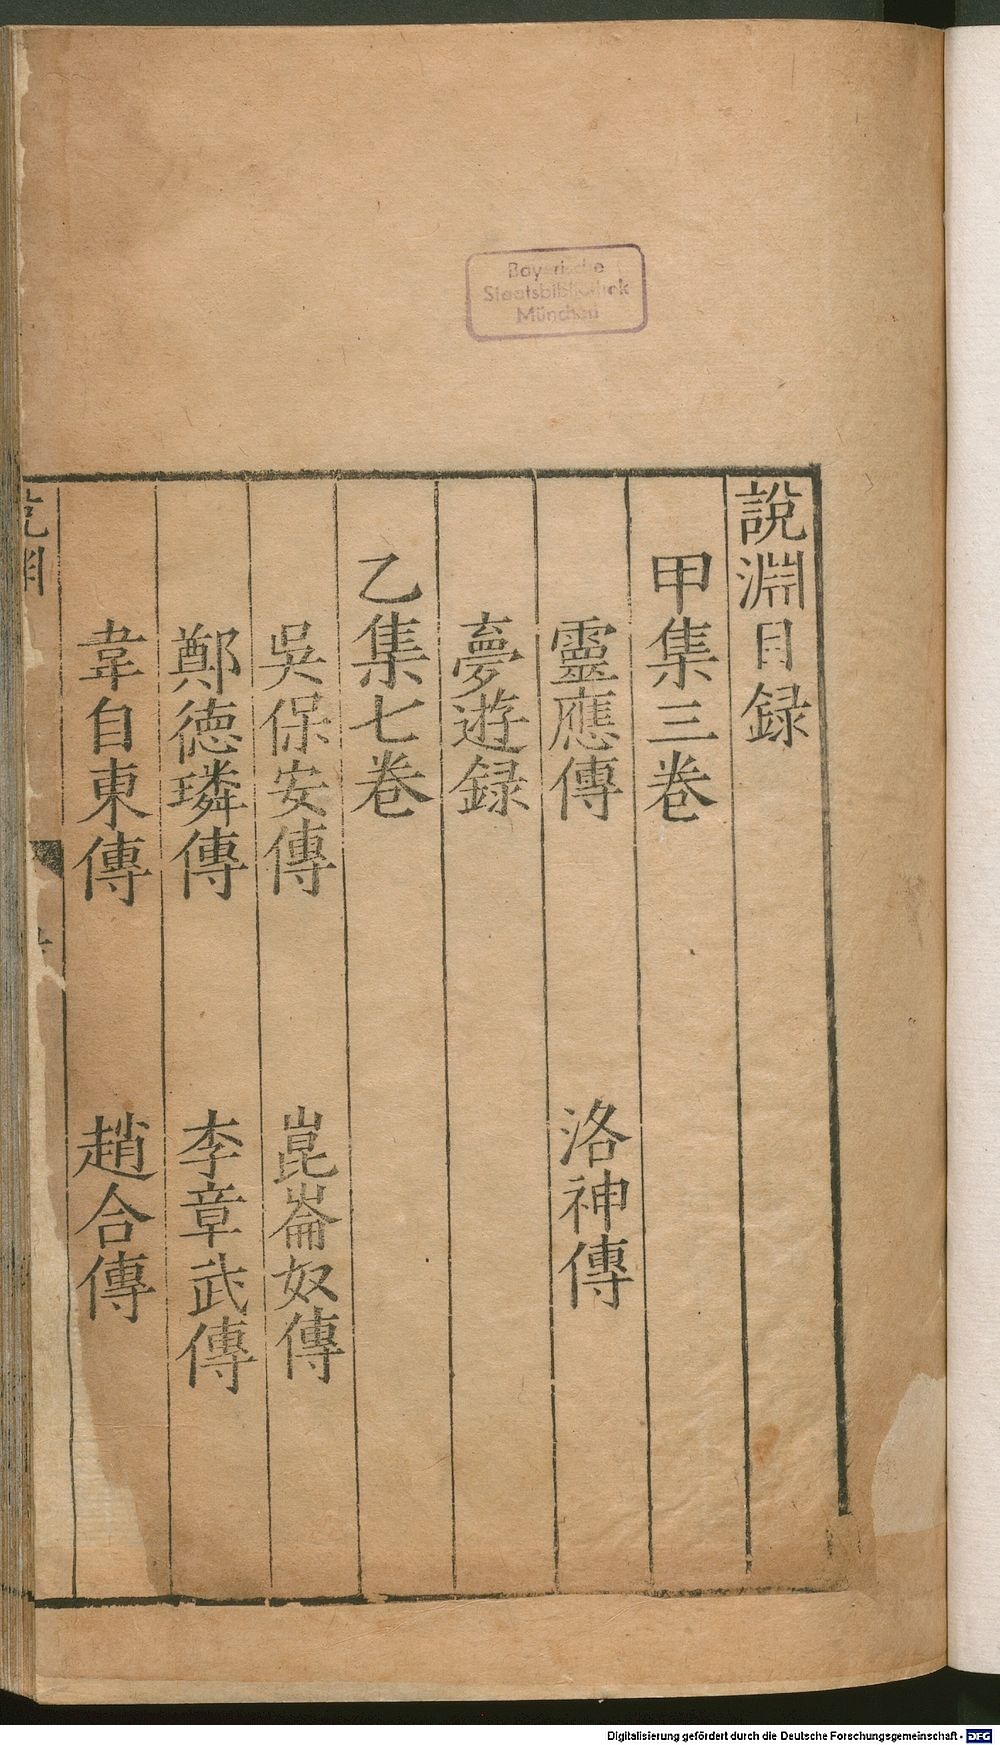 Bayerische
Staatsbibliothek
München
說淵目録
甲集三卷
靈應傳 洛神傳
夢遊録
乙集七卷
吳保安傳 崑崙奴傳
鄭徳璘傳 李章武傳
韋自東傳 趙合傳
Digitalisierung gefördert durch die Deutsche Forschungsgemeinschaft - DFG